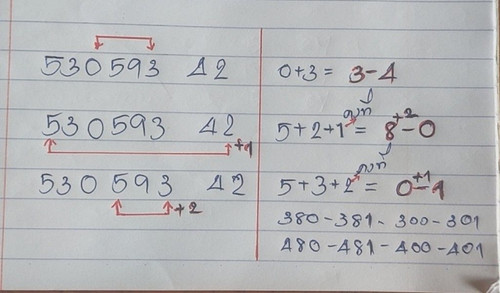 530593 42
0+3 = 3-4
530593 42
+1
5+2+1 = 8-0
+2
530593 42
+2
5+3+2 = 0-1
+1
380-381-300-301
480-481-400-401